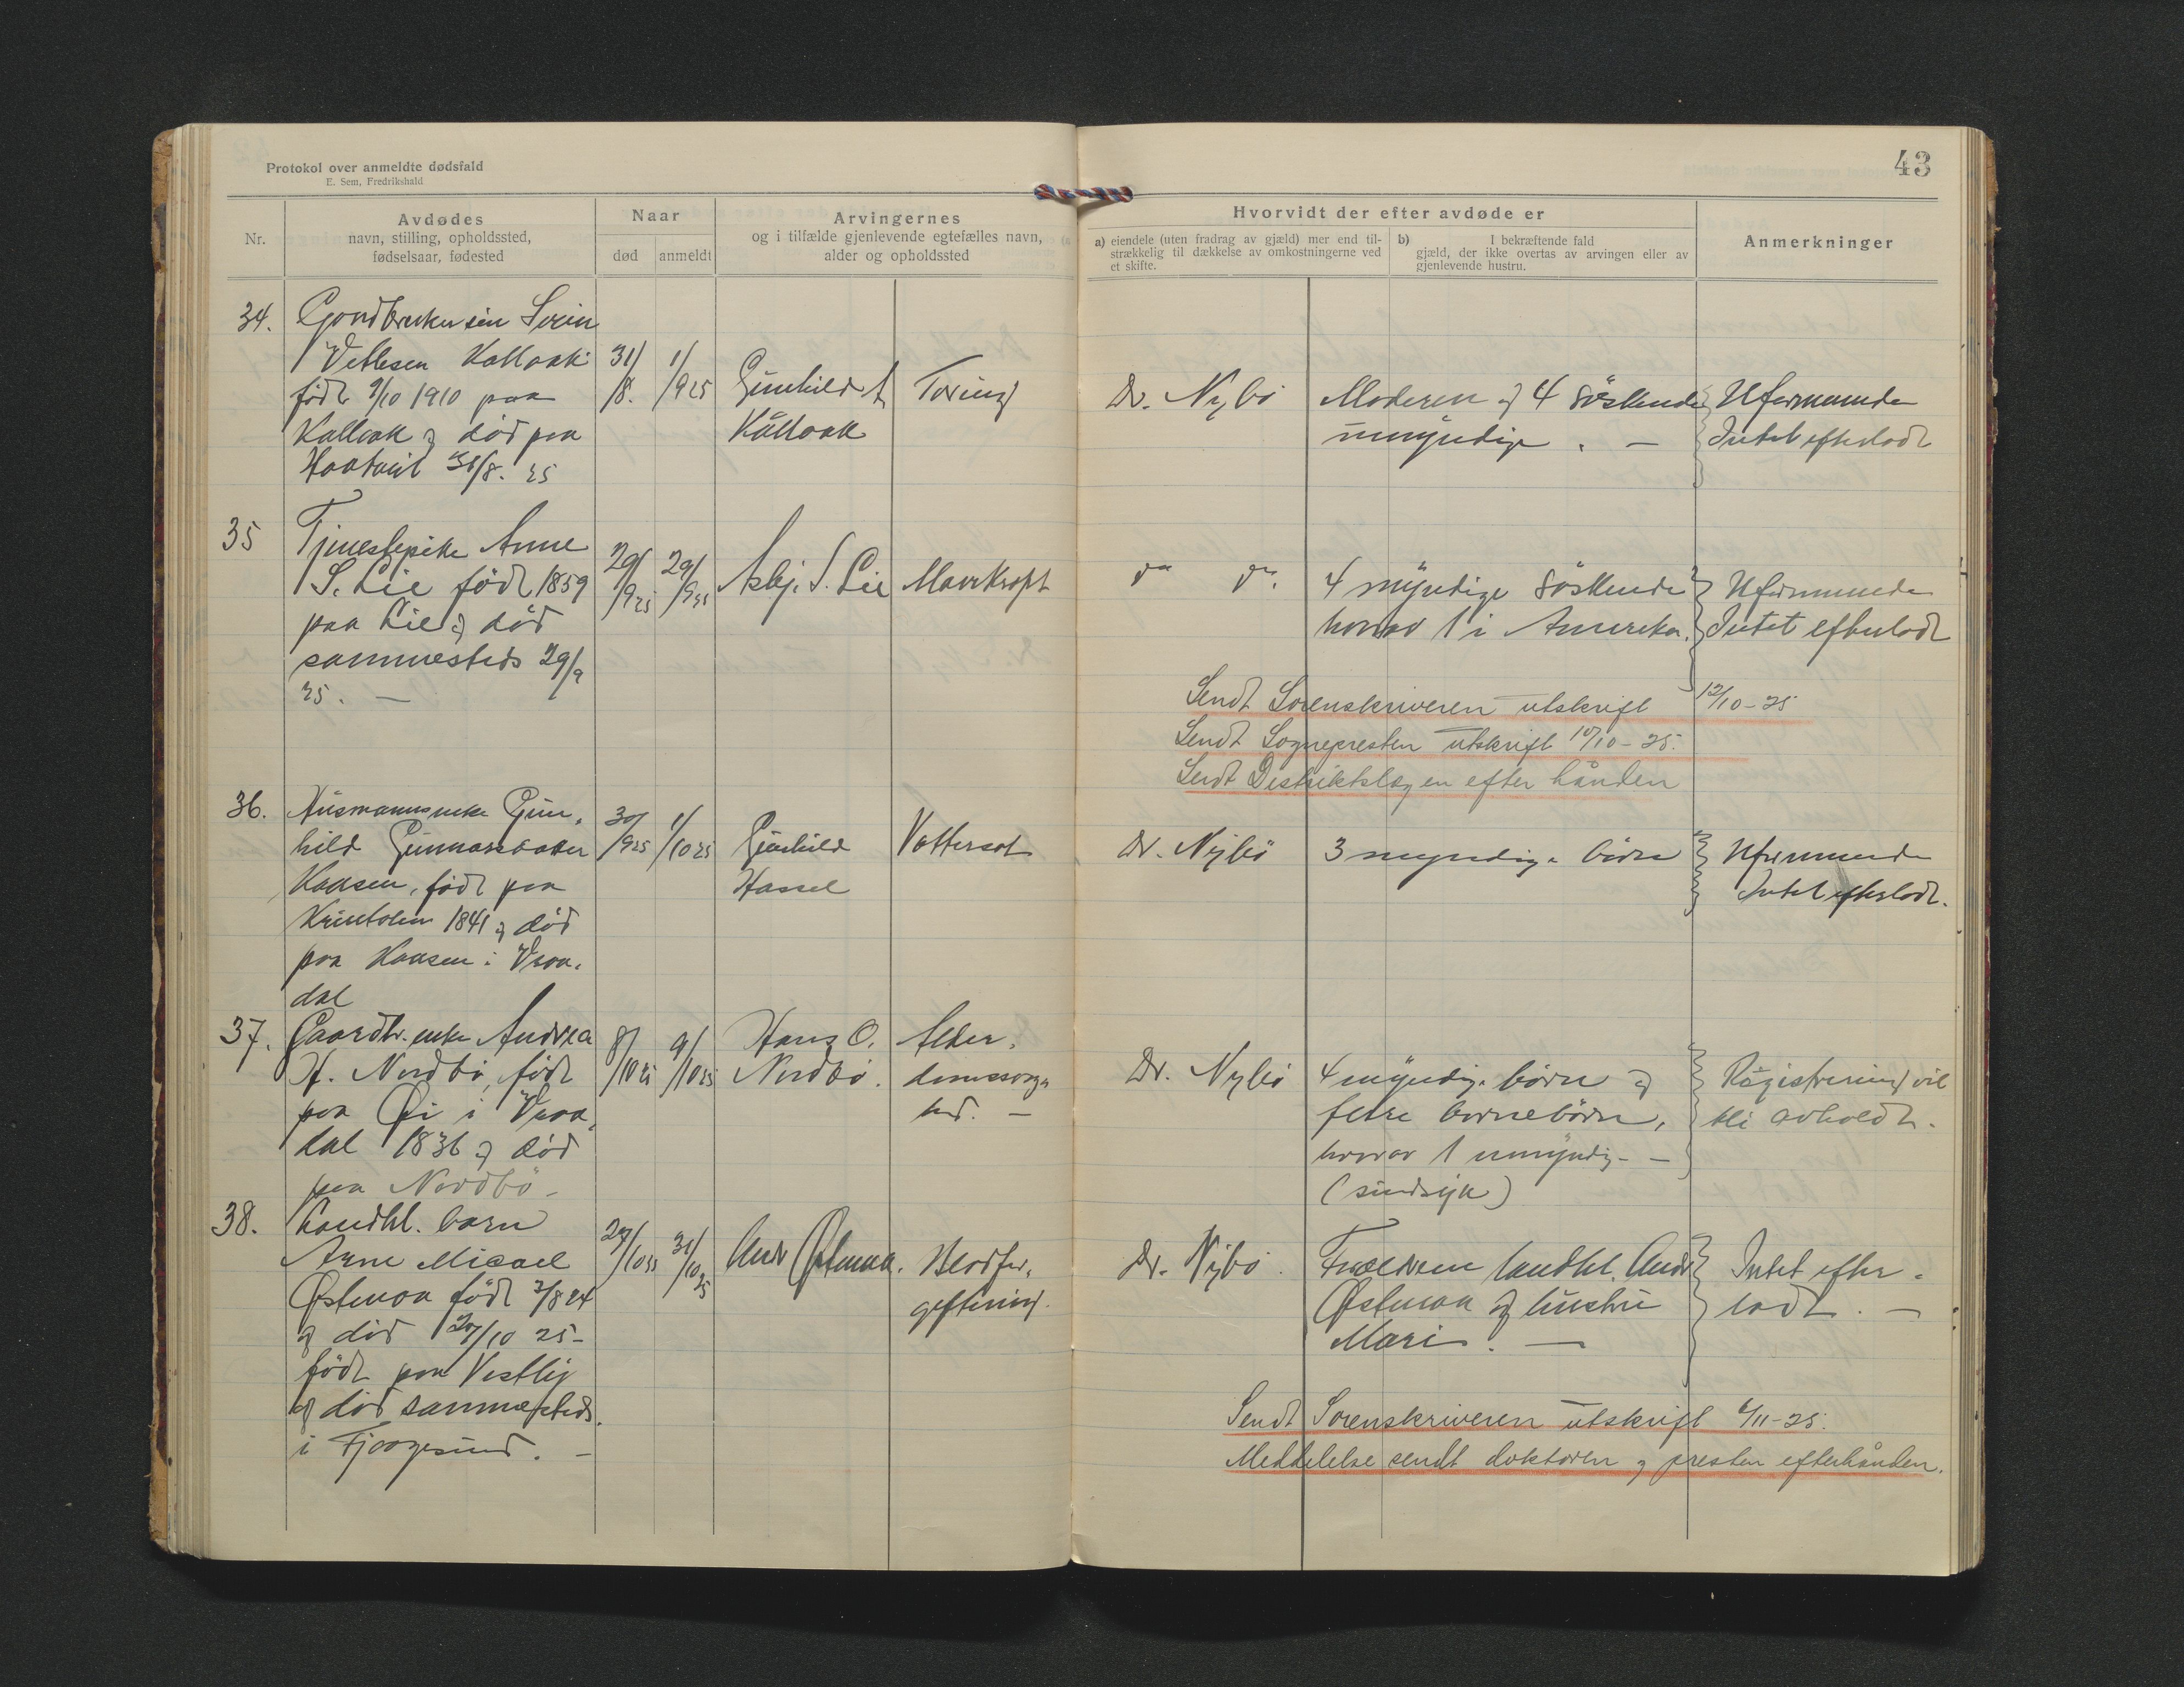 Protokol over anmeldte dødsfald
E. Sem, Fredrikshald
43
Nr.
Avdødes
navn, stilling, opholdssted,
fødselsaar, fødested
Naar
død
anmeldt
Arvingernes
og i tilfælde gjenlevende egtefælles navn,
alder og opholdssted
Hvorvidt der efter avdøde er
a) eiendele (uten fradrag av gjæld) mer end til-
strækkelig til dækkelse av omkostningerne ved
et skifte.
b) I bekræftende fald
gjæld, der ikke overtas av arvingen eller av
gjenlevende hustru.
Anmerkninger
34.
Gaardbruker søn Svein
Vetlesen Kallaak
født 9/10 1910 paa
Kallaak og død paa
31/8. 25
31/8.
1/9 25
Gunhild
Kallaak
Dr. Nybö
Moderen og 4 söskende
umyndige. —
Uformuende
Intet efterladt
35
Tjenestepike Anne
S. Lie født 1859
paa Lie og død
sammesteds 29/9
25. —
29/9 25
29/9 25
Asbj. S. Lie
Mavekræft
do do.
4 myndige söskende
hvorav 1 i Amerika.
Uformuende
Intet efterladt
Sendt Sorenskriveren utskrift 12/10-25
Sendt Sognepresten utskrift 10/10-25.
Sendt Distriktslægen efter hånden
36.
Husmannsenke Gun-
hild Gunnarsdatter
Haasen, født paa
1841 og død
paa Haasen i Vraa-
dal
30/9 25
1/10 25
Gunhild
Hassel
Vattersot
Dr. Nybö
3 myndige börn
Uformuende
Intet efterladt.
37.
Gaardbr. enke Andrea
H. Nordbö, født
paa Øi i Vraa-
dal 1836 og død
paa Nordbö -
8/10 25
9/10 25
Hans O.
Nordbö.
Alder-
domssvag-
hed. —
Dr. Nybö
4 myndige börn og
flere barnebörn,
hvorav 1 umyndig - -
(sindsyk)
Registrering vil
bli avholdt.
38.
Landhl. barn
Arne Micael
Østmoa født 3/8 24
og död 27/10 25-
født paa Vestlij
og död sammesteds.
i Fjaagesund. —
27/10 25
31/10 25
Andr Østmoa.
Blodfor-
giftning.
Dr. Nybö.
Forældrene landhl. Andr
Østmoa og hustru
Mari. —
Intet efter-
ladt. —
Sendt Sorenskriveren utskrift 6/11-25.
Meddelelse sendt doktoren og presten efterhånden.